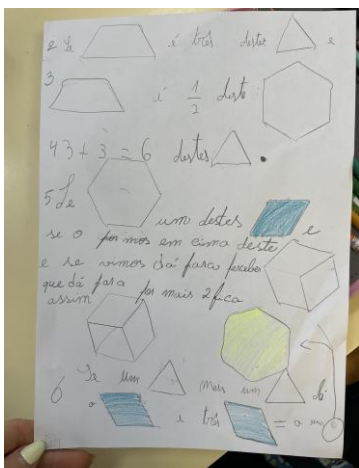 2 Se é três destes e
3 é 1/2 deste
4 3 + 3 = 6 destes .
5 Se um destes e
se o pormos em cima deste
e se vimos dá para perceber
que dá para por mais 2 fica
assim
6 Se um mais um dá
o e três = o um